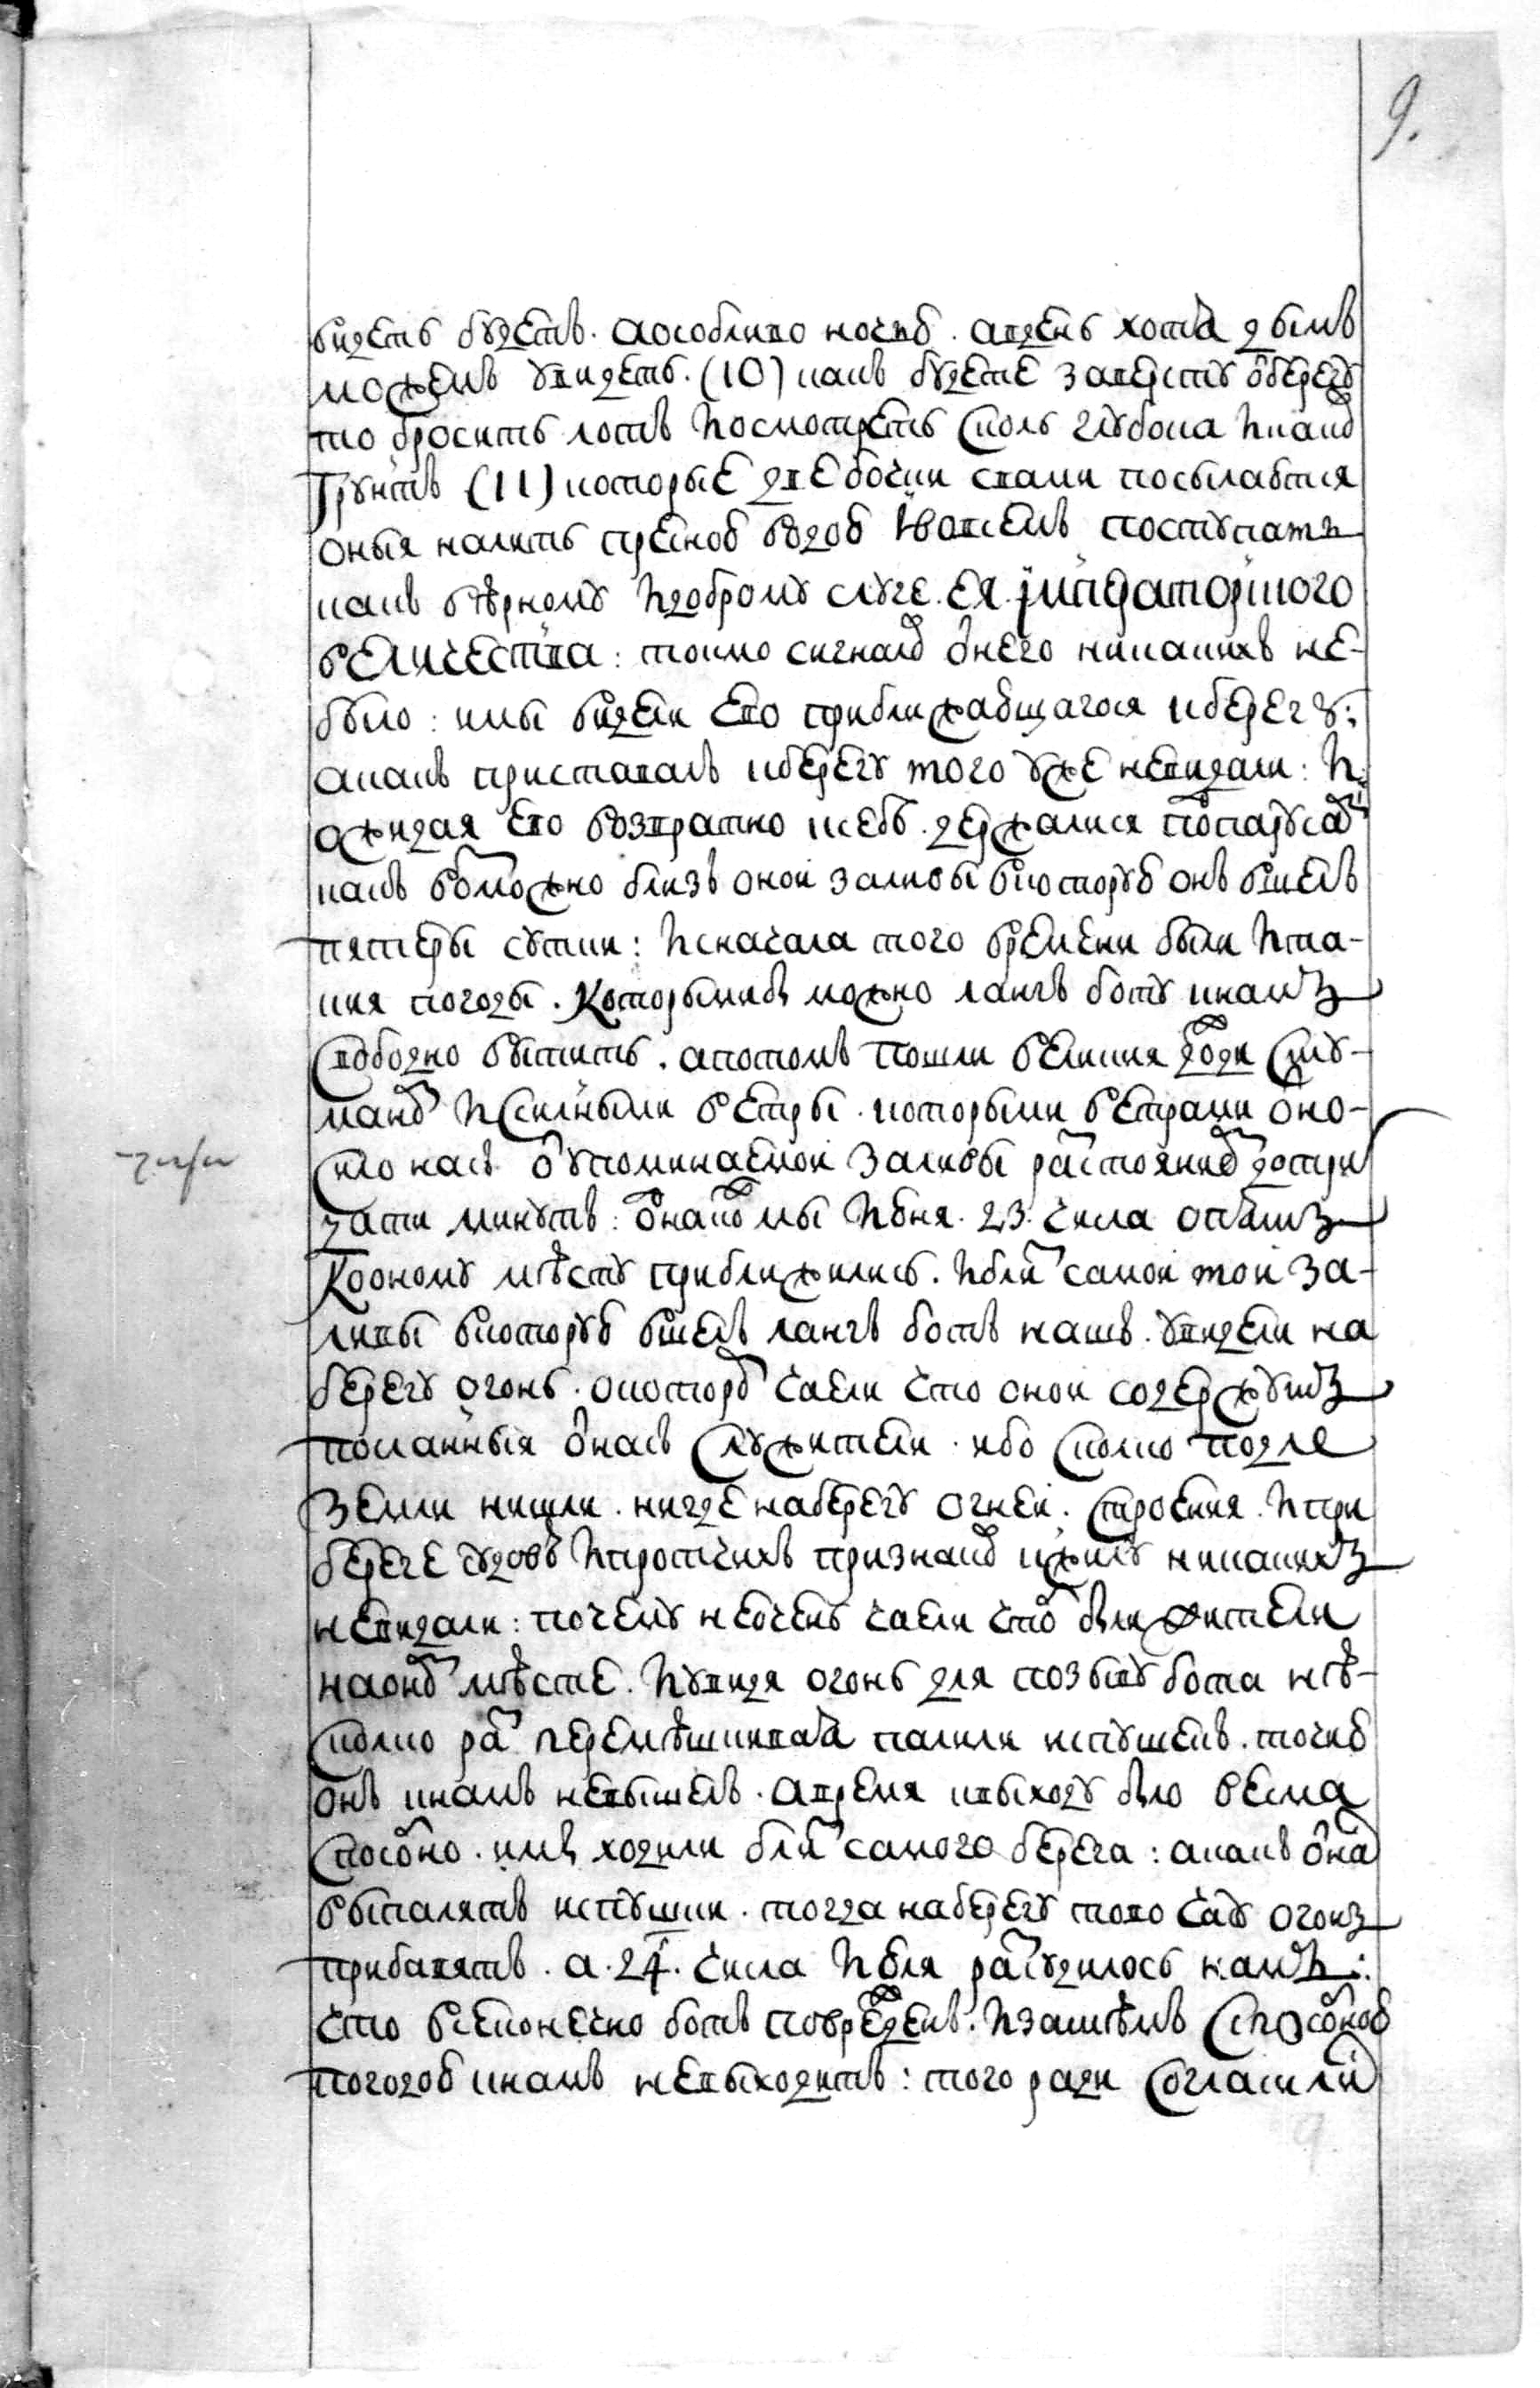 9.
видеть будетъ. аособливо ночью. авдень хотя дымъ
можемъ увидеть. (10) какъ будете заверсту отберегу
то бросить лотъ ипосмотреть сколь глубока икаковъ
грунтъ (11) которые две бочки свами посылаются
оныя налить пресною водою ивовсемъ поступать
какъ вѣрному идоброму слуге. ея. імператорского
величества: токмо сигналовъ отнего никакихъ не-
было: имы видели ево приближающагося кберегу:
акакъ приставалъ кберегу того уже невидали: и.
ожидая ево возвратно ксебѣ. держалися подпарусами
какъ возможно близъ оной заливы вкоторую онъ вшелъ
пятеры сутки: исначала того времени были ита-
кия погоды. которымибъ можно лангъ боту кнамъ
свободно выттить. апотомъ пошли великия дожди сту-
маномъ исилными ветры. которыми ветрами отно-
сило насъ отупоминаемой заливы растояниемъ дотри
дцати минутъ: однакожъ мы июля. 23. числа опять
кооному мѣсту приближились. иблиз самой той за-
ливы вкоторую вшелъ лангъ ботъ нашъ. увидели на
берегу огонь. окоторомъ чаели что оной содержутъ
посланныя отнасъ служители. ибо сколко подле
земли нишли. нигде наберегу огней. строения. ипри
береге судовъ ипротчихъ признаковъ кжилу никакихъ
невидали: почему неочень чаели чтоб были жители
наономъ мѣсте. иувидя огонь для позыву бота нѣ-
сколко раз перемѣшиваяс палили испушекъ. точию
онъ кнамъ невышелъ. авремя квыходу было весма
способно. имы ходили близ самого берега: акакъ однажды
выпалятъ испушки. тогда наберегу тово часу огонь
прибавятъ. а. 24. числа июля разсудилось намъ:
что всеконечно ботъ поврежденъ. изатѣмъ способною
погодою кнамъ невыходитъ: того ради согласились